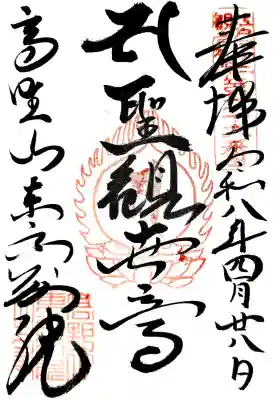 奉拝 令和八年四月廿八日
聖観世音
高野山東京別院